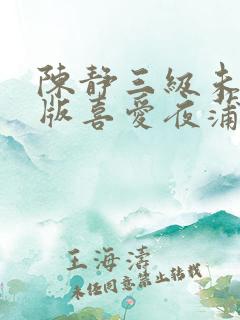 陳靜三級未
版喜愛夜蒲
王海濤
未经同意禁止转载